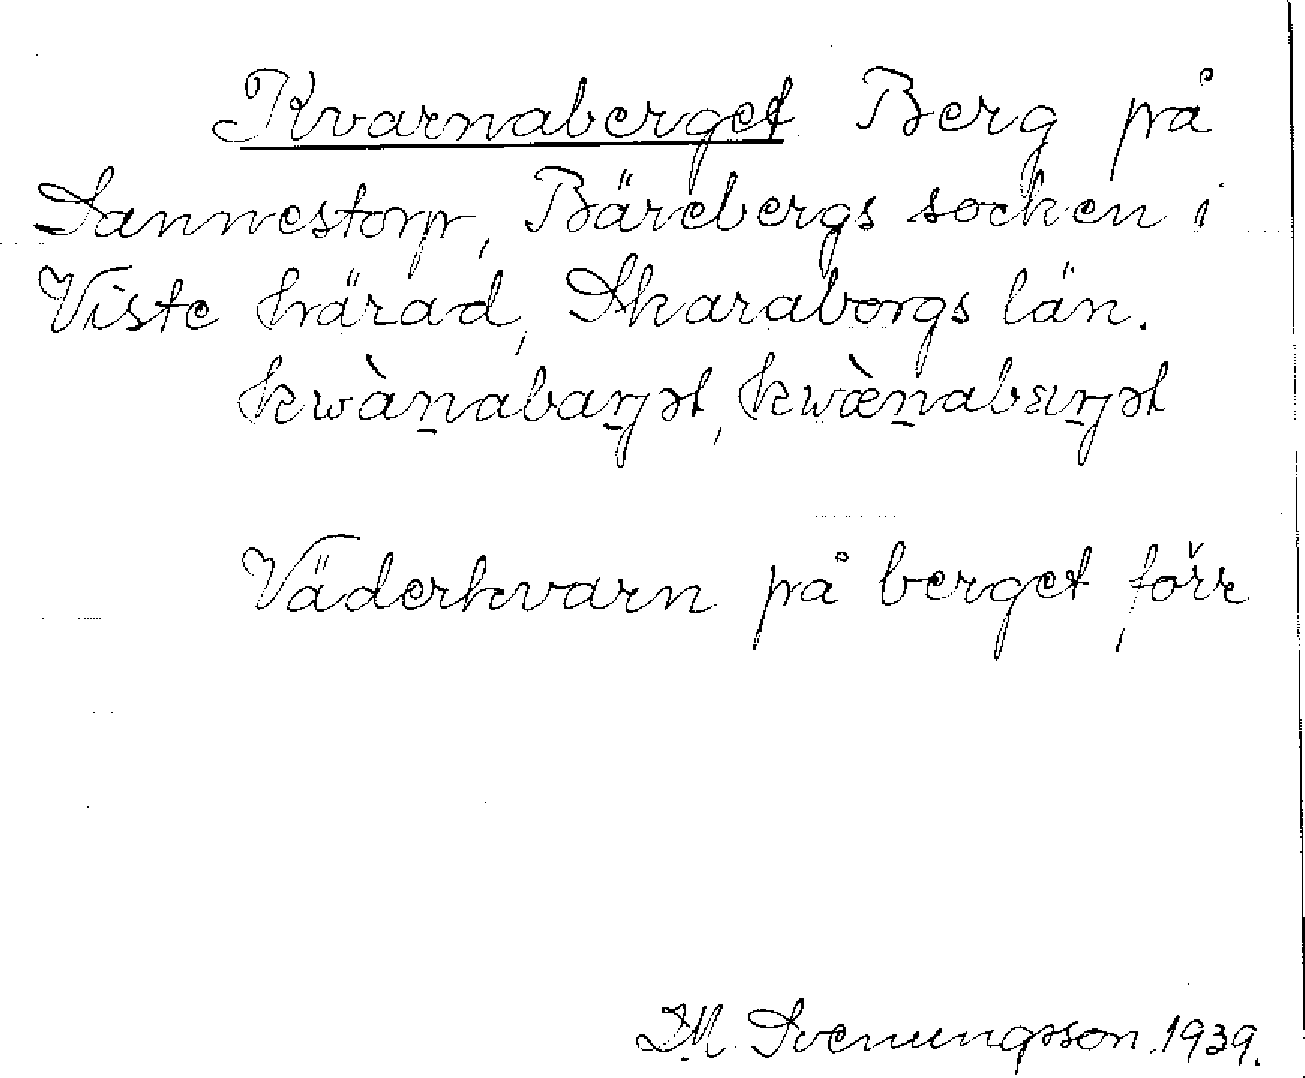 Kvarnaberget Berg på
Sannestorp, Bärebergs socken i
Viste härad, Skaraborgs län.
kwàn̠abaŋ̠ət, kwæ̀n̠abɛŋ̠ət
Väderkvarn på berget förr
S.M. Svenungsson 1939.